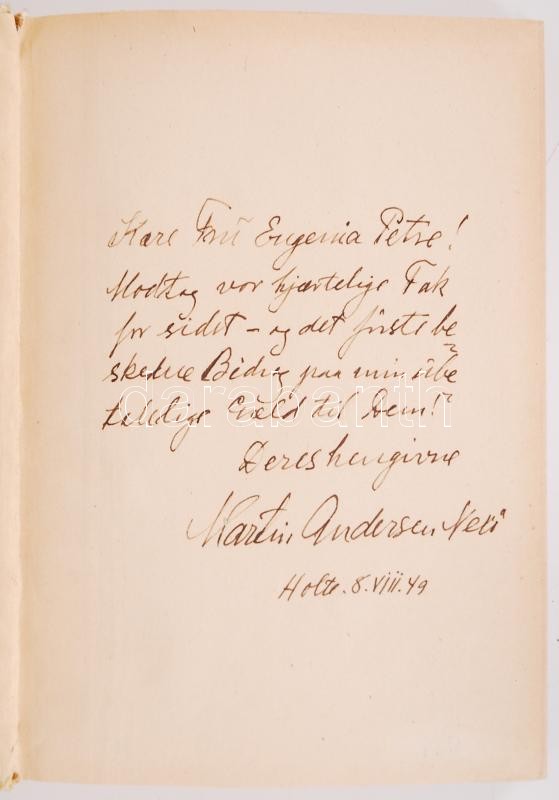 Kære Frū Eugenia Petre!
Modtag vor hjærtelige Tak
for sidst – og det første be
skedne Bidrag paa min ube
talelige Gæld til Dem!
Deres hengivne
Martin Andersen Nexö
Holte. 8.VIII.49
darabanth